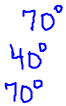 70°
40°
70°